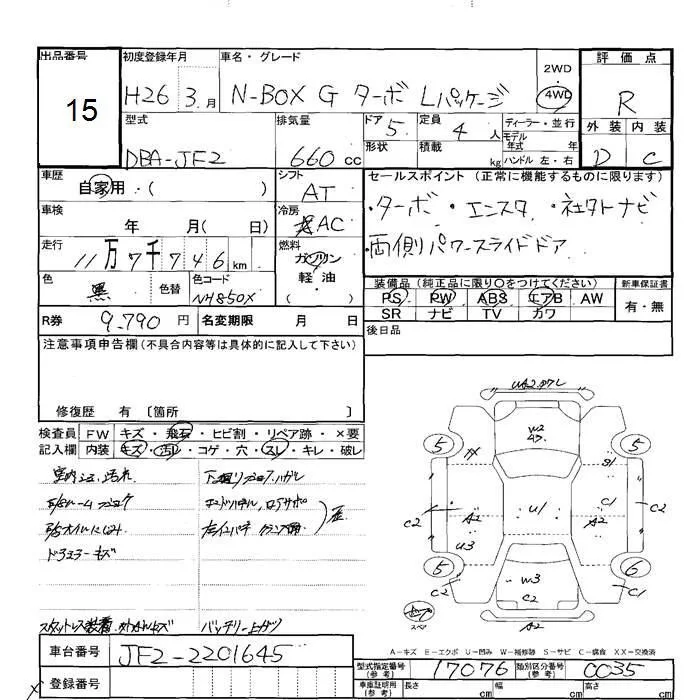 出品番号 15
初度登録年月 H26 3月
車名・グレード N-BOX G ターボ Lパッケージ
2WD 4WD
評価点 R
外装 内装
D C
型式 DBA-JF2
排気量 660cc
ドア 5 定員 4人
形状 積載 kg
ディーラー・並行
モデル年式 年
ハンドル 左・右
車歴 自家用・( )
シフト AT
セールスポイント (正常に機能するものに限ります)
・ターボ ・エンスタ ・社外ナビ
・両側パワースライドドア
車検 年 月( 日)
冷房 AC
走行 11万7千746km
燃料 ガソリン・軽・油 ( )
色 黒 色替 色コード NH850X
装備品 (純正品に限り○をつけてください) 新車保証書
PS PW ABS エアB AW
SR ナビ TV カワ
有・無
R券 9.790円 名変期限 月 日
後日品
注意事項申告欄(不具合内容等は具体的に記入して下さい)
修復歴 有 〔箇所 〕
検査員 FW キズ・飛石・ヒビ割・リペア跡・×要
記入欄 内装 キズ・汚れ・コゲ・穴・スレ・キレ・破レ
ドアミラーキズ
バッテリー上がり
UA2
W2
5 5
S1
C2 A2 U1 A2 C1 C2
U3
5 6
W3
C2 C2 C1
A2
スペア
A-キズ E-エクボ U-凹み W-補修跡 S-サビ C-腐食 XX-交換済
車台番号 JF2-2201645
登録番号
型式指定番号(参考) 17076 類別区分番号(参考) 0035
車庫証明用(参考) 長さ cm 幅 cm 高さ cm